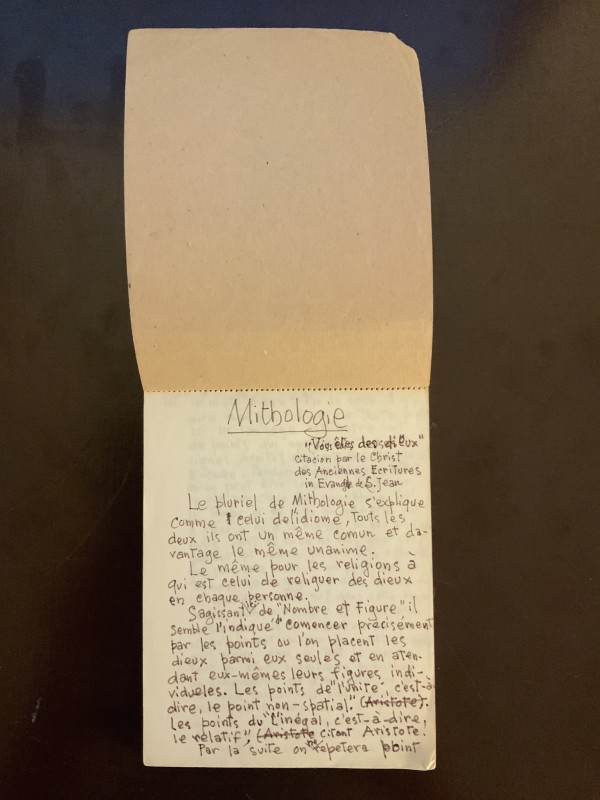 Mithologie
"Vous êtes des dieux"
Citacion par le Christ
des Anciennes Ecritures
in Evangile de S. Jean
Le pluriel de Mithologie s'explique
comme celui de l'idiome, Touts les
deux ils ont un même comun et da-
vantage le même unanime.
Le même pour les religions à
qui est celui de religuer des dieux
en chaque personne.
Sagissant de "Nombre et Figure" il
semble l'indiqué comencer precisément
par les points ou l'on placent les
dieux parmi eux seules et en aten-
dant eux-mêmes leurs figures indi-
viduelles. Les points de "l'unité, c'est-à-
dire, le point non-spatial." (Aristote).
Les points du "l'inégal, c'est-à-dire,
le relatif", (Aristote citant Aristote.
Par la suite on repetera point